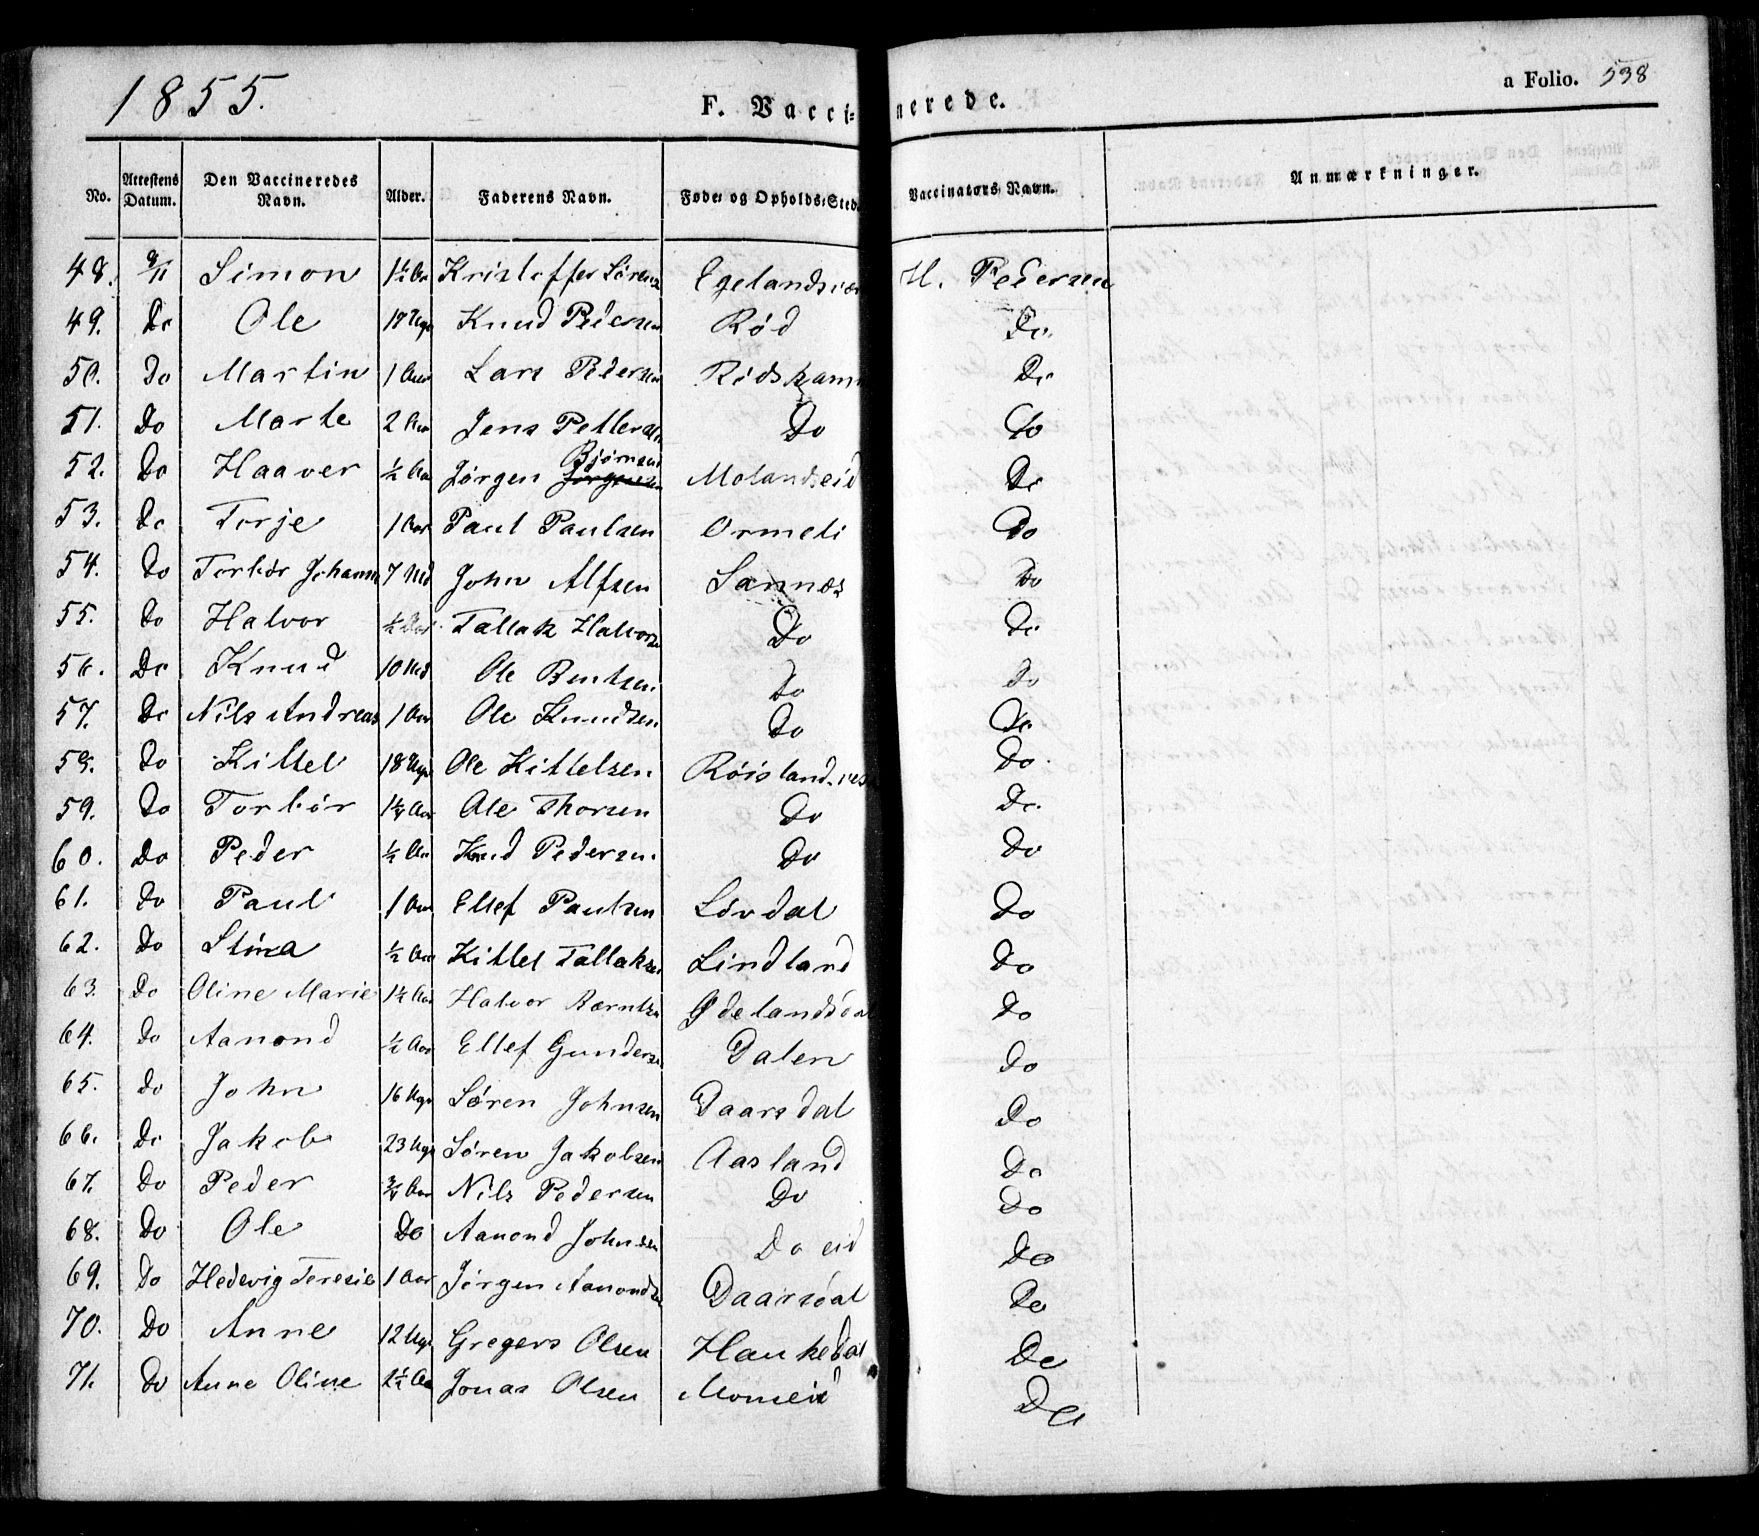 1855.
F. Vaccinerede.
a Folio. 538
No. Attestens Datum. Den Vaccineredes Navn. Alder. Faderens Navn. Føde- og Opholds-Sted. Vaccinators Navn. Anmærkninger.
48. 9/11 Simon 1½ Aar Kristoffer Sørens Egelandsvær H. Pedersen
49. Do Ole 17 Uger Knud Pedersen Rød Do.
50. Do Martin 1 Aar Lars Pedersen Rødskam Do
51. Do Marte 2 Aar Jens Pettersen Do Do
52. Do Haaver ½ Aar Jørgen Jørgensen Bjørnsen Molandseid Do
53. Do Torje 1 Aar Paul Paulsen Ormeli Do
54. Do Torbør Johanne 7 Md John Alfsen Sannæs Do
55. Do Halvor ½ Aar Tallak Halvors Do Do
56. Do Knud 10 Md Ole Bentsen Do Do
57. Do Nils Andreas 1 Aar Ole Knudsen Do Do
58. Do Kittel 18 Uger Ole Kittelsen Røislands Do.
59. Do Torbør 1¼ Aar Ole Thorsen Do Do.
60. Do Peder ½ Aar Knud Pedersen Do Do
61. Do Paul 1 Aar Ellef Paulsen Løvdal Do
62. Do Stina ½ Aar Kittel Tallaksen Lindland Do
63. Do Oline Marie 1½ Aar Halvor Berntsen Ødelandsdal Do
64. Do Aanond ½ Aar Ellef Gundersen Dalen Do
65. Do John 16 Uger Søren Johnsen Daarsdal Do
66. Do Jakob 23 Uger Søren Jakobsen Aasland Do
67. Do Peder ¾ Aar Nils Pedersen Do Do
68. Do Ole Do Aanond Johnsen Do eid Do
69. Do Hedevig Teresie 1 Aar Jørgen Aanondsen Daarsdal Do
70. Do Anne 12 Uger Gregers Olsen Haukedal Do
71. Do Anne Oline 2½ Aar Jonas Olsen Momeid Do